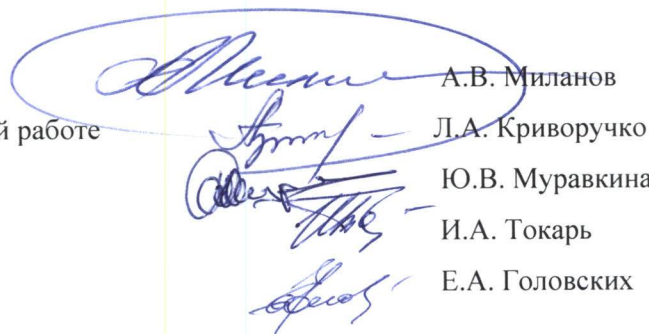 А.В. Миланов
й работе Л.А. Криворучко
Ю.В. Муравкина
И.А. Токарь
Е.А. Головских